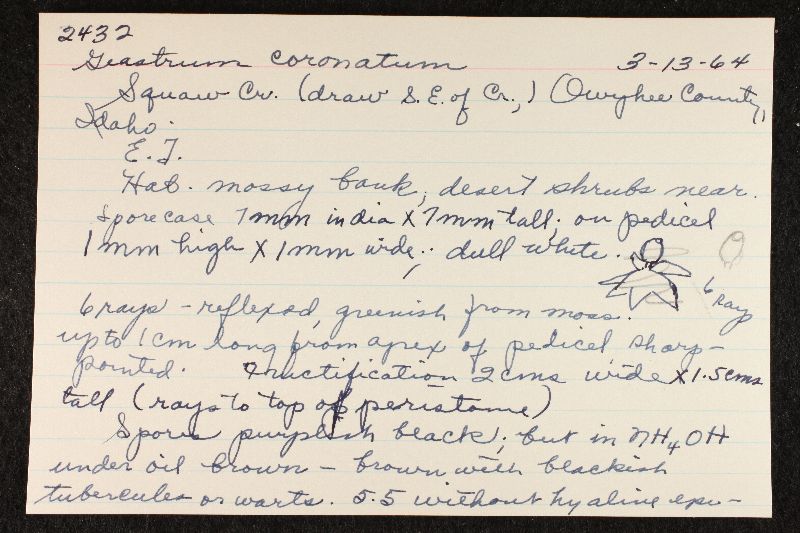 2432
Geastrum coronatum 3-13-64
Squaw Cr. (draw S.E. of Cr.,) Owyhee County,
Idaho.
E.T.
Hab. mossy bank, desert shrubs near.
Sporecase 7mm in dia X 7mm tall; on pedicel
1mm high X 1mm wide; dull white.
6 rays
6 rays - reflexed, greenish from moss.
up to 1cm long from apex of pedicel sharp-
pointed. Fructification 2cms wide X 1.5cms
tall (rays to top of peristome)
Spores purplish black; but in NH4OH
under oil brown - brown with blackish
tubercules or warts. 5.5 without hyaline epi-